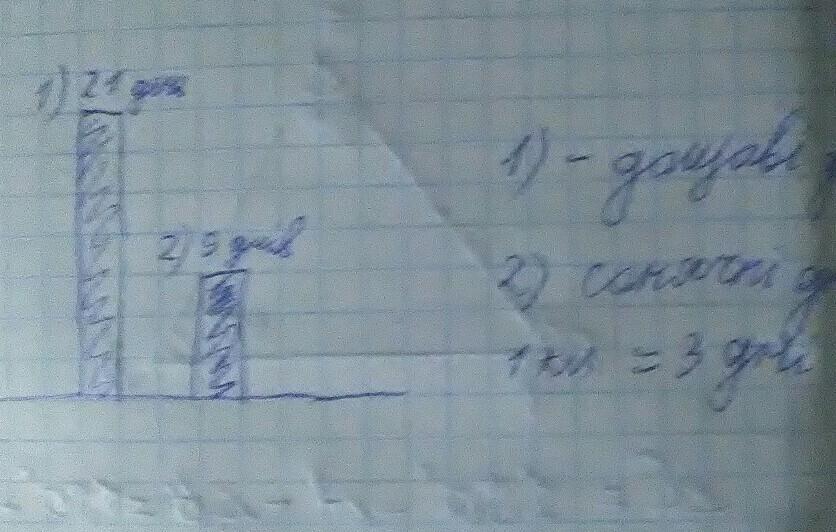 1) 21
2) 9 днів
1) - дощові
2) сонячні
1 кл = 3 дні